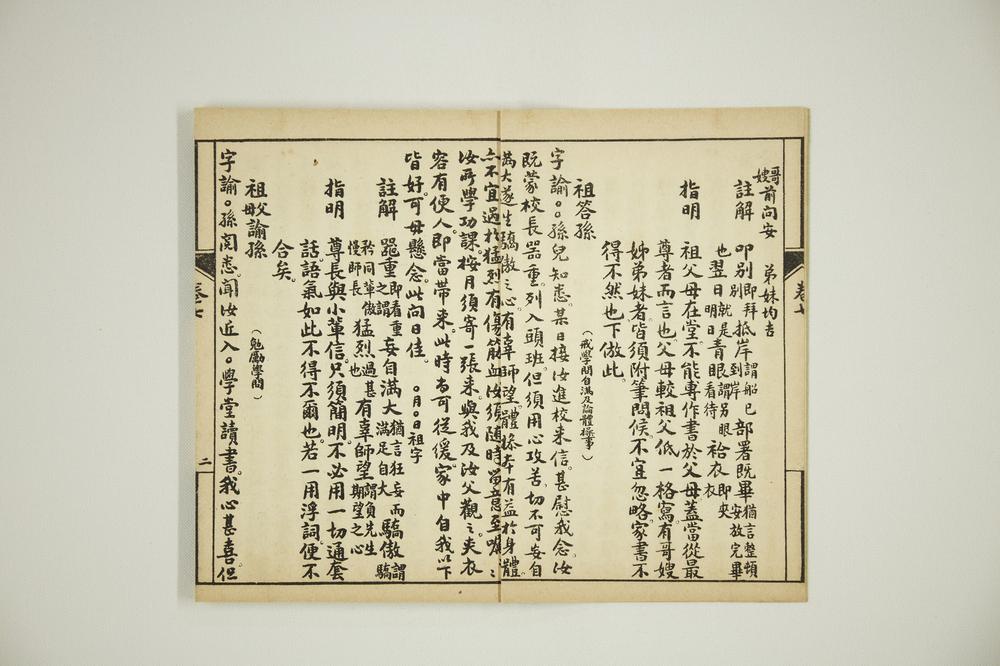 哥嫂前向安　弟妹均吉
註解　叩别即拜别就是抵岸謂船已到岸部署既畢猶言整頓安放完畢
也翌日明日青眼謂另眼看待袷衣即夾衣
指明　祖父母在堂不能專作書於父母蓋當從最
尊者而言也父母較祖父低一格寫有哥嫂
姊弟妹者皆須附筆問候不宜忽略家書不
得不然也下倣此
祖答孫（戒學問自滿及論體操事）
字諭○○孫兒知悉某日接汝進校來信甚慰我念汝
既蒙校長器重列入頭班但須用心攻苦切不可妄自
滿大遂生驕傲之心有辜師望體操本有益於身體
亦不宜過於猛烈有傷筋血汝須隨時留意至囑至囑
汝所學功課按月須寄一張來與我及汝父觀之夾衣
容有便人即當帶來此時尚可從緩家中自我以下
皆好可毋懸念此問日佳　○月○日祖字
註解　器重即看重之謂妄自滿大猶言狂妄而滿足自大驕傲謂驕
矜同輩傲慢師長猛烈過甚也有辜師望謂負先生期望之心
指明　尊長與小輩信只須簡明不必用一切通套
話語氣如此不得不爾也若一用浮詞便不
合矣
祖父母諭孫（勉勵學問）
字諭○孫閱悉聞汝近入○學堂讀書我心甚喜但
卷七
卷七
二